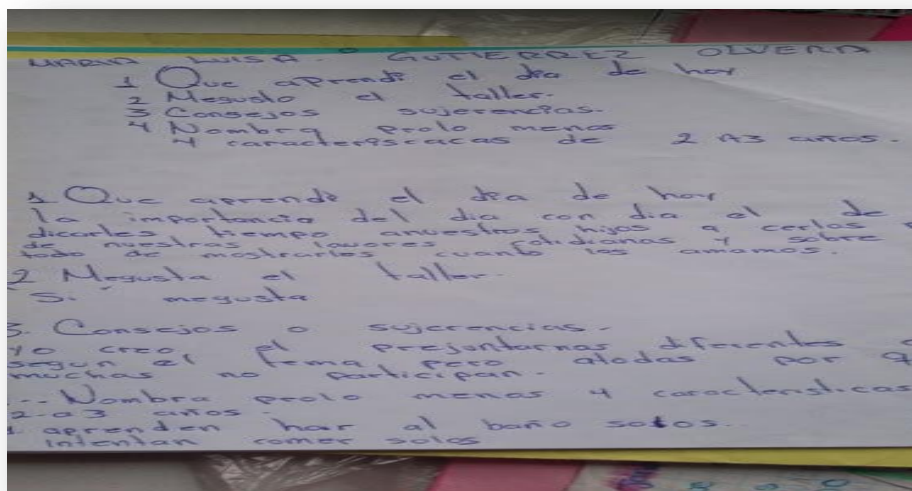 MARIA LUISA GUTIERREZ OLVERA
1 Que aprendi el dia de hoy
2 Megusto el taller.
3 Consejos sujerencias.
4 Nombra prolo menos
4 caracteriscacas de 2 A3 años.
1 Que aprendi el dia de hoy
la importancia del dia con dia el de
dicarles tiempo anuestros hijos a cerlos
de nuestras lavores cotidianas y sobre
todo de mostrarles cuanto los amamos.
2 Megusta el taller.
Si megusta
3. Consejos o sujerencias.
yo creo el prejuntarnas diferentes
segun el tema pero atodas por
muchas no participan.
Nombra prolo menos 4 caracteristicas
2-a 3 años.
1 aprenden har al baño solos.
intentan comer solos